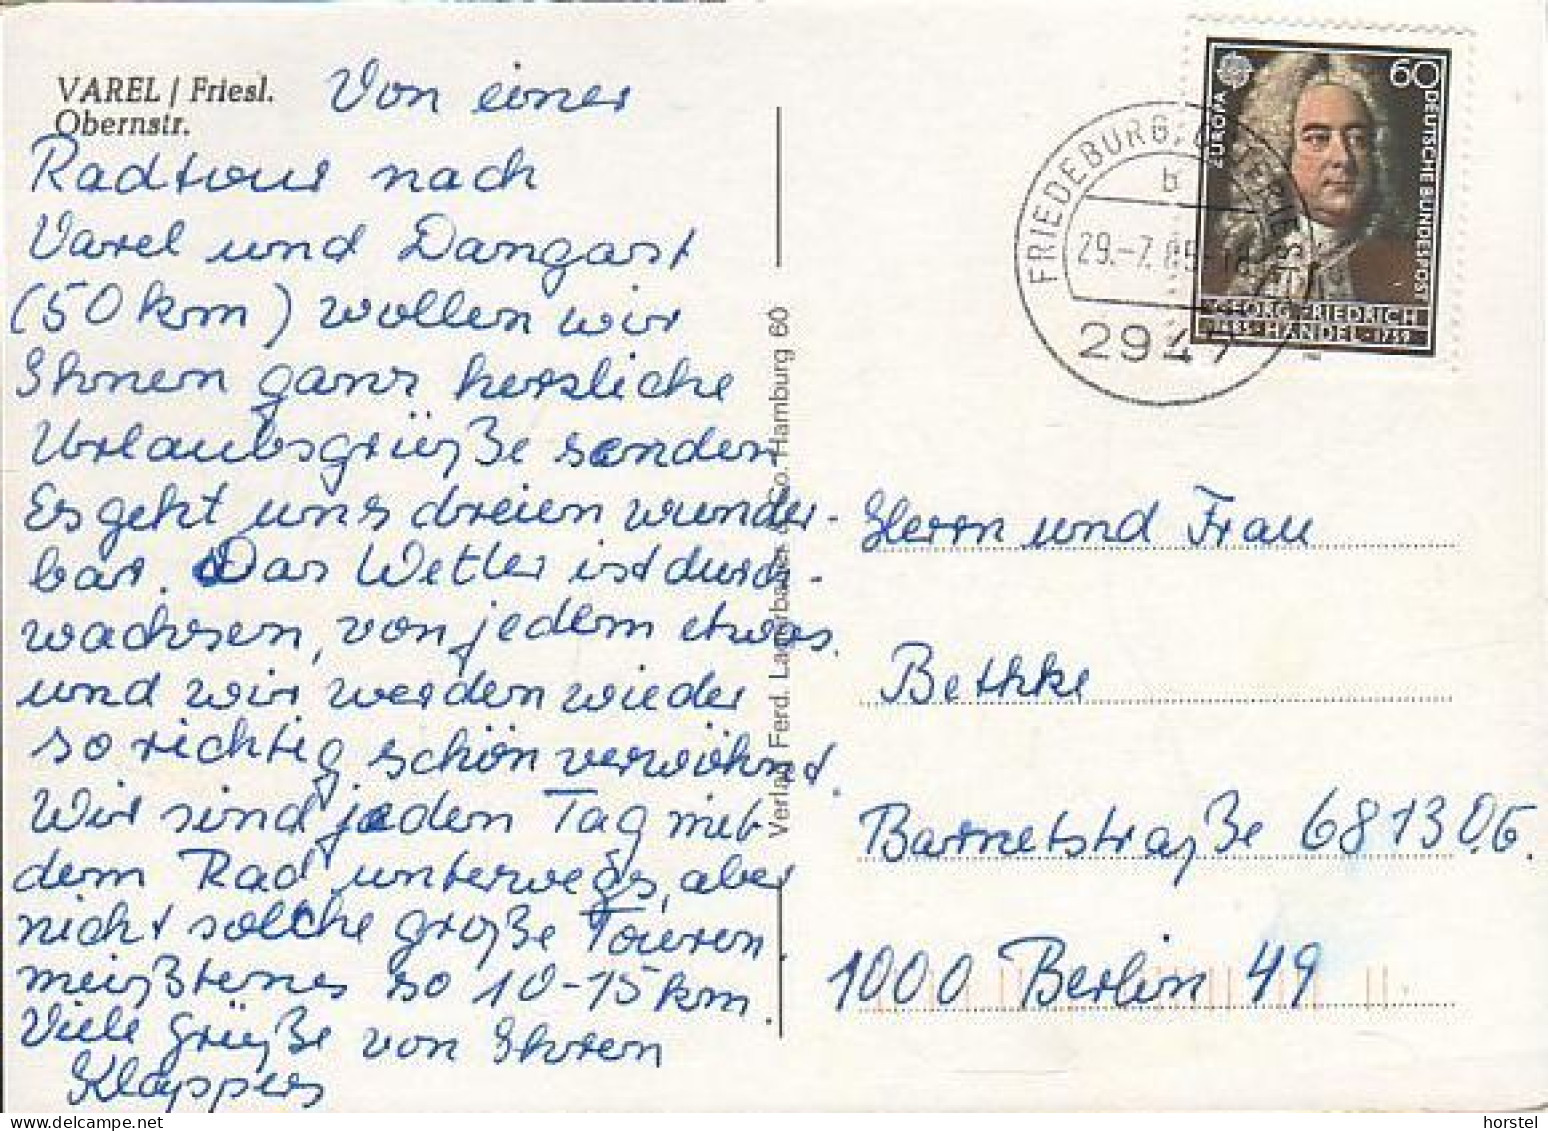 VAREL / Friesl.
Obernstr.
Von einer
Radtour nach
Varel und Dangast
(50 km) wollen wir
Ihnen ganz herzliche
Urlaubsgrüße senden
Es geht uns dreien wunder-
bar. Das Wetter ist durch-
wachsen, von jedem etwas.
und wir werden wieder
so richtig schön verwöhnt.
Wir sind jeden Tag mit
dem Rad unterwegs, aber
nicht solche große Touren.
meißtens so 10-15 km.
Viele Grüße von Ihren
Klappers
Verlag Ferd. Lagerbauer & Co. Hamburg 60
60
DEUTSCHE BUNDESPOST
EUROPA
GEORG FRIEDRICH
1685·HÄNDEL·1759
FRIEDEBURG,
b
29.-7.85
2947
Herrn und Frau
Bethke
Barnetstraße 68 13 O.G.
1000 Berlin 49
horstel
www.delcampe.net